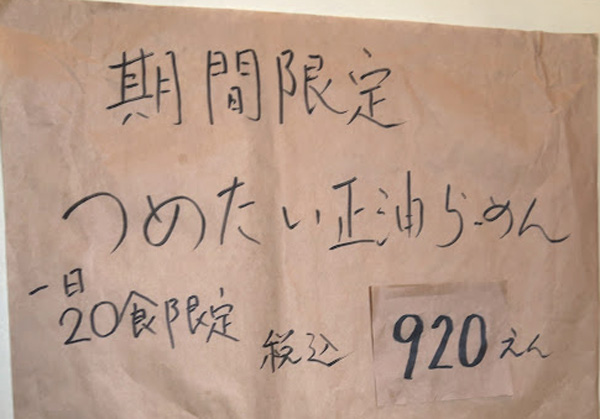 期間限定
つめたい正油らーめん
一日
20食限定
税込 920えん